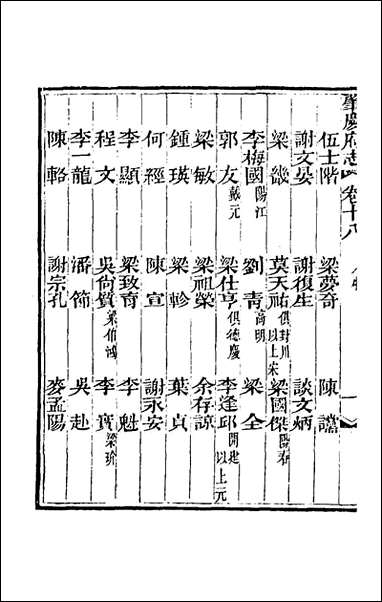 肇慶府志 卷十八 人物 一
伍士階 梁夢奇 陳讜
謝文晏 謝復生 談文炳
梁幾 莫天祐 俱封川以上宋 梁國傑 陽春
李梅國 陽江 劉青 高明 梁全
郭友 戴元 梁仕亨 俱德慶 李逢邱 開建以上元
梁敏 梁祖榮 余存諒
鍾瑛 梁軫 葉貞
何經 陳宣 謝永安
李顯 梁致育 李魁
程文 吳尚質 梁伯鴻 李寶 梁瑜
李一龍 潘節 吳赴
陳輅 謝宗孔 麥孟陽